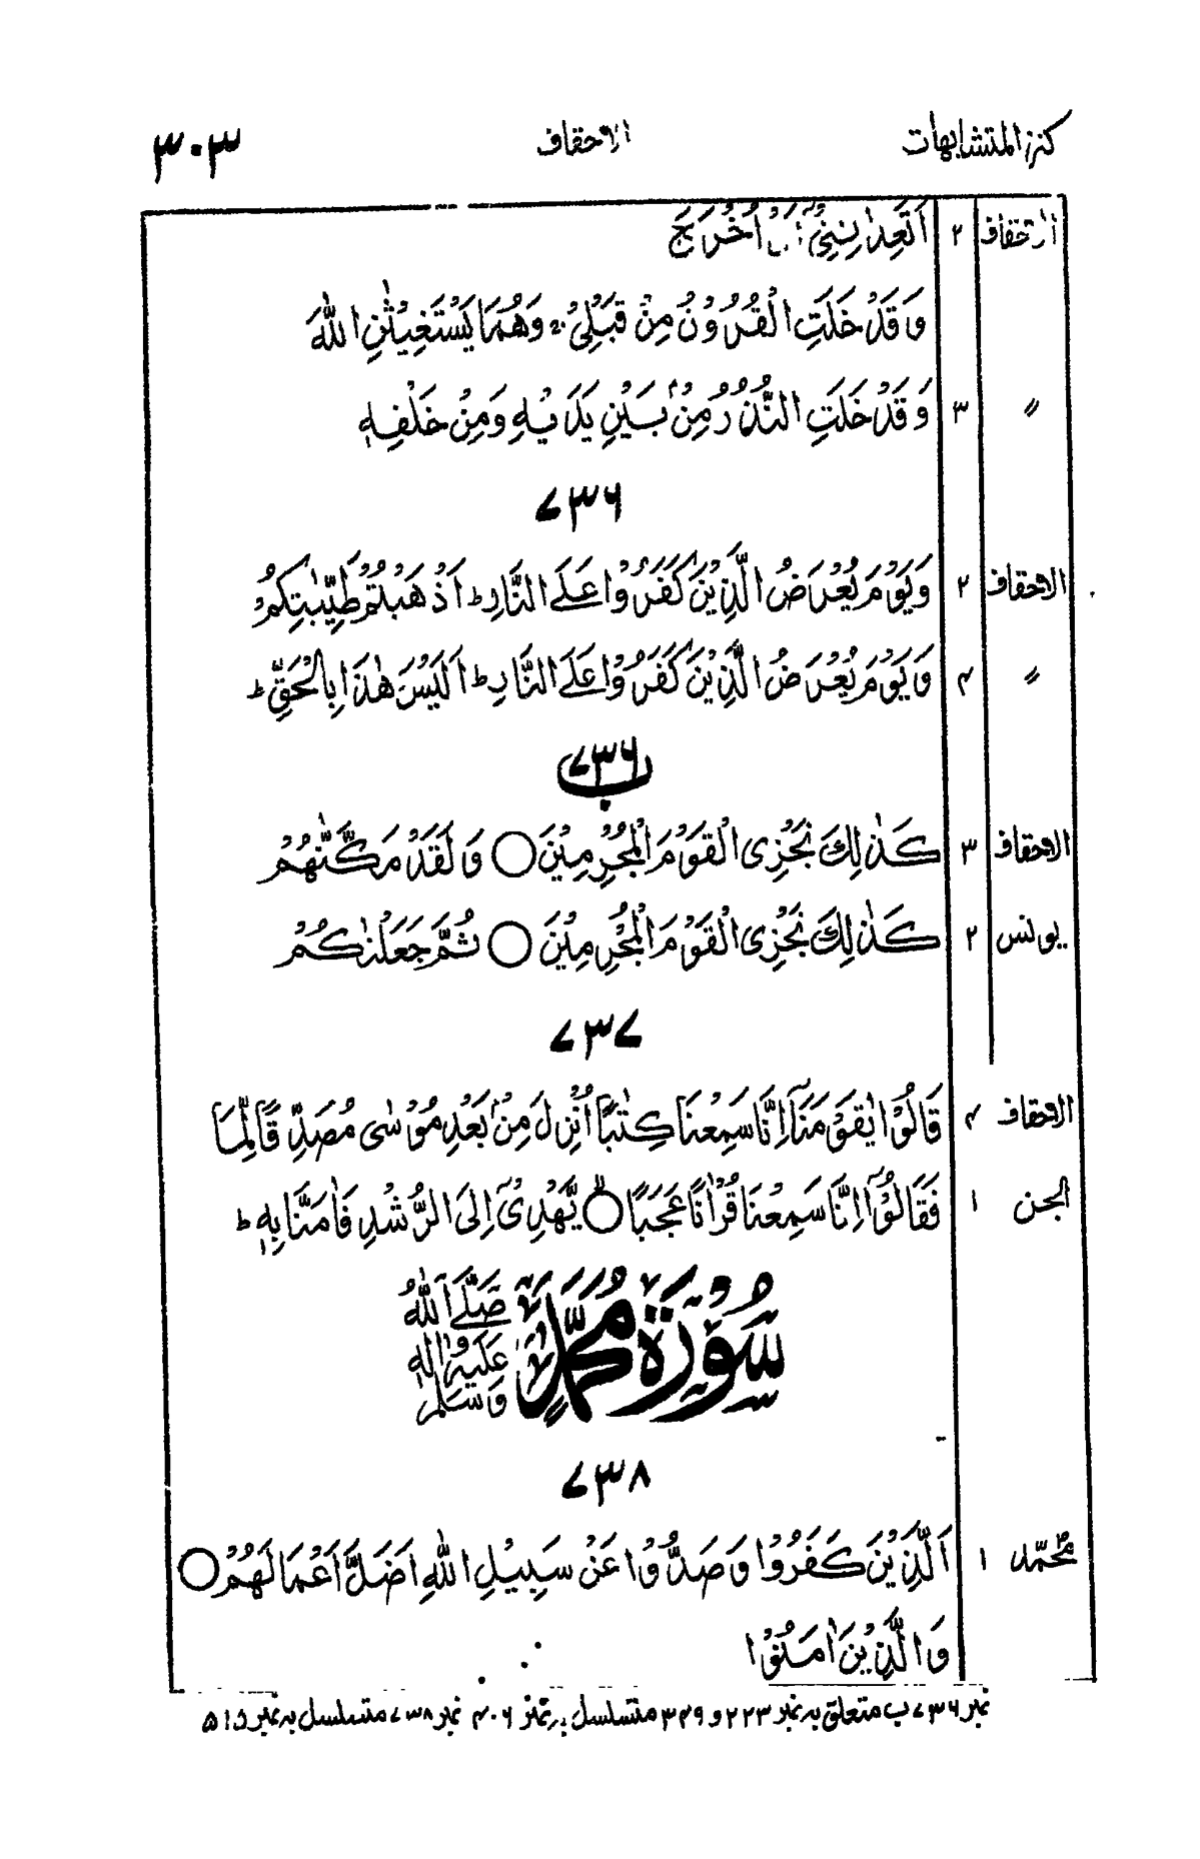 كنز المتشابهات الاحقاف ٣٠٣
الاحقاف ٢ اَتَعِدٰنِنِيْٓ اَنْ اُخْرَجَ
وَقَدْ خَلَتِ الْقُرُوْنُ مِنْ قَبْلِيْ وَهُمَا يَسْتَغِيْثٰنِ اللّٰهَ
〃 ٣ وَقَدْ خَلَتِ النُّذُرُ مِنْۢ بَيْنِ يَدَيْهِ وَمِنْ خَلْفِهٖ
٧٣٦
الاحقاف ٢ وَيَوْمَ يُعْرَضُ الَّذِيْنَ كَفَرُوْا عَلَى النَّارِ ط اَذْهَبْتُمْ طَيِّبٰتِكُمْ
〃 ٤ وَيَوْمَ يُعْرَضُ الَّذِيْنَ كَفَرُوْا عَلَى النَّارِ ط اَلَيْسَ هٰذَا بِالْحَقِّ ط
٧٣٦ ب
الاحقاف ٣ كَذٰلِكَ نَجْزِى الْقَوْمَ الْمُجْرِمِيْنَ ○ وَلَقَدْ مَكَّنّٰهُمْ
يونس ٢ كَذٰلِكَ نَجْزِى الْقَوْمَ الْمُجْرِمِيْنَ ○ ثُمَّ جَعَلْنٰكُمْ
٧٣٧
الاحقاف ٤ قَالُوْا يٰقَوْمَنَآ اِنَّا سَمِعْنَا كِتٰبًا اُنْزِلَ مِنْۢ بَعْدِ مُوْسٰى مُصَدِّقًا لِّمَا
الجن ١ فَقَالُوْٓا اِنَّا سَمِعْنَا قُرْاٰنًا عَجَبًا ○ يَّهْدِيْٓ اِلَى الرُّشْدِ فَاٰمَنَّا بِهٖ ط
سُوْرَةُ مُحَمَّدٍ صَلَّى اللّٰهُ عَلَيْهِ وَاٰلِهٖ وَسَلَّمَ
٧٣٨
محمّد ١ اَلَّذِيْنَ كَفَرُوْا وَصَدُّوْا عَنْ سَبِيْلِ اللّٰهِ اَضَلَّ اَعْمَالَهُمْ ○
وَالَّذِيْنَ اٰمَنُوْا
نمبر ٧٣٦ ب متعلق بہ نمبر ٢٢٣ و ٣٤٩ متسلسل بہ نمبر ٤٠٦ نمبر ٧٣٨ متسلسل بہ نمبر ٥١٥